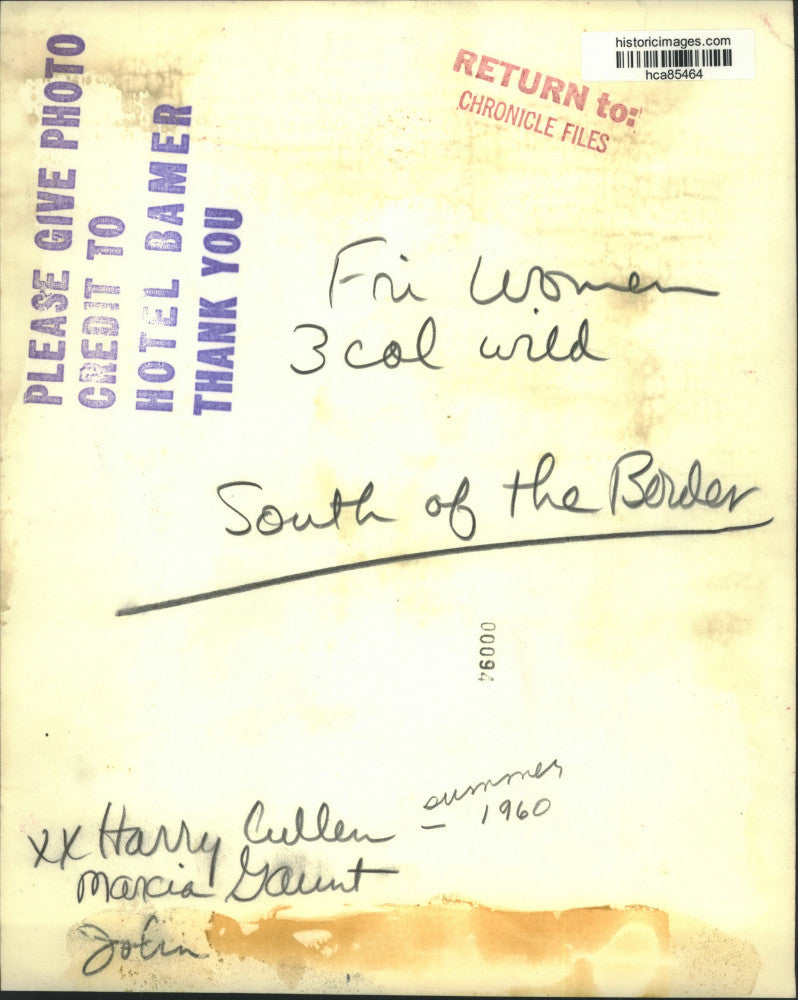 historicimages.com
hca85464
RETURN to:
CHRONICLE FILES
PLEASE GIVE PHOTO
CREDIT TO
HOTEL BAMER
THANK YOU
Fri Women
3 col wild
South of the Border
00094
summer
1960
xx Harry Cullen –
Marcia Gaunt
John